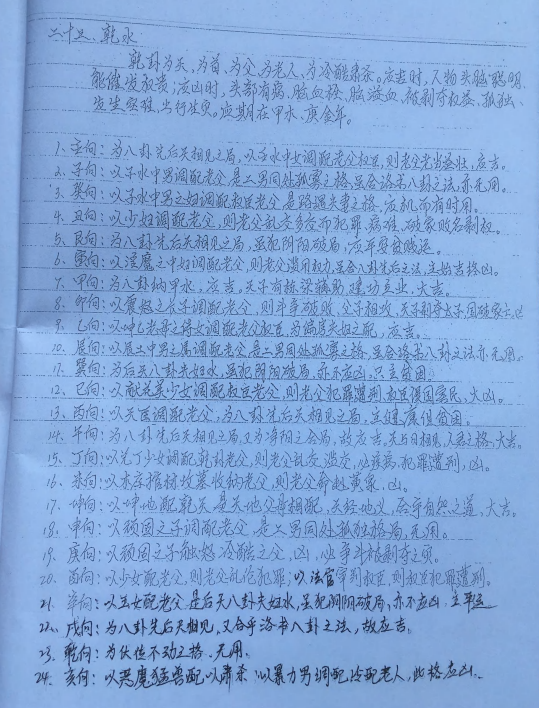 二十三、乾水
乾卦为天、为首、为父、为老人、为冷酷肃杀。应吉时,人物头脑聪明
能催发权贵;应凶时,头部有病、脑血栓、脑溢血、被剥夺权益、孤独、
发生灾难、出行生灾。应期在甲木、庚金年。
1、壬向:为八卦先后天相见之局,以壬水中女调配老父权臣,则老父老当益壮,应吉。
2、子向:以子水中男调配老父是二男同处孤寡之格,虽合洛书八卦之法,亦无用。
3、癸向:以子水中男之妇调配权臣老父是路遇夫妻之格,应机而有时用。
4、丑向:以少妇调配老父,则老父乱交多交而犯罪、病难、破家败名剥权。
5、艮向:为八卦先后天相见之局,虽犯阴阳破局,应平安贫贱运。
6、寅向:以淫魔之中妇调配老父,则老父滥用权力,虽合八卦先后之法,主始吉终凶。
7、甲向:为八卦纳甲水,应吉,天子有栋梁辅助,建功立业,大吉。
8、卯向:以震怒之长子调配老父,则斗争破败,父子相攻,天子剥夺太子,国破家亡凶
9、乙向:以坤乙老母之侍女调配老父权臣,为偏房夫妇之配,应吉。
10、辰向:以辰土中男之属调配老父,是二男同处孤寡之格,虽合洛书八卦之法亦无用。
11、巽向:为后天八卦夫妇水,虽犯阴阳破局,亦不应凶,只主贫困。
12、巳向:以献花美少女调配权臣老父,则老父犯罪遭刑,权臣误国害民,大凶。
13、丙向:以天臣调配老父,为八卦先后天相见之局,主健康但贫困。
14、午向:为八卦先后天相见之局,又为净阳之合局,故应吉,天与日相见,人君之格,大吉。
15、丁向:以兑丁少女调配乾卦老父,则老父乱交、滥交,必病、犯罪遭刑,凶。
16、未向:以木库棺材坟墓收纳老父,则老父命赴黄泉,凶。
17、坤向:以坤地配乾天,是天地父母相配,天经地义,合乎自然之道,大吉。
18、申向:以顽固之子调配老父,是二男同处孤独格局,无用。
19、庚向:以顽固之子触怒冷酷之父,凶,必争斗被剥夺之灾。
20、酉向:以少女配老父,则老父乱伦犯罪;以法官审判权臣,则权臣犯罪遭刑。
21、辛向:以主女配老父,是后天八卦夫妇水,虽犯阴阳破局,亦不应凶,主平运
22、戌向:为八卦先后天相见,又合乎洛书八卦之法,故应吉。
23、乾向:为伏位不动之格,无用。
24、亥向:以恶魔猛兽配以肃杀,以暴力男调配冷配老人,此格应凶。